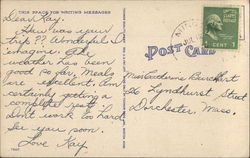 THIS SPACE FOR WRITING MESSAGES
Dear Kay,
How was your
trip?? Wonderful I
imagine. The
weather has been
good so far, Meals
are excellent. Am
certainly getting a
complete rest.
Don't work too hard
See you soon.
Love Kay.
POST CARD
1 CENT 1
Miss Gertrude
26 Lyndhurst Street
Dorchester, Mass.